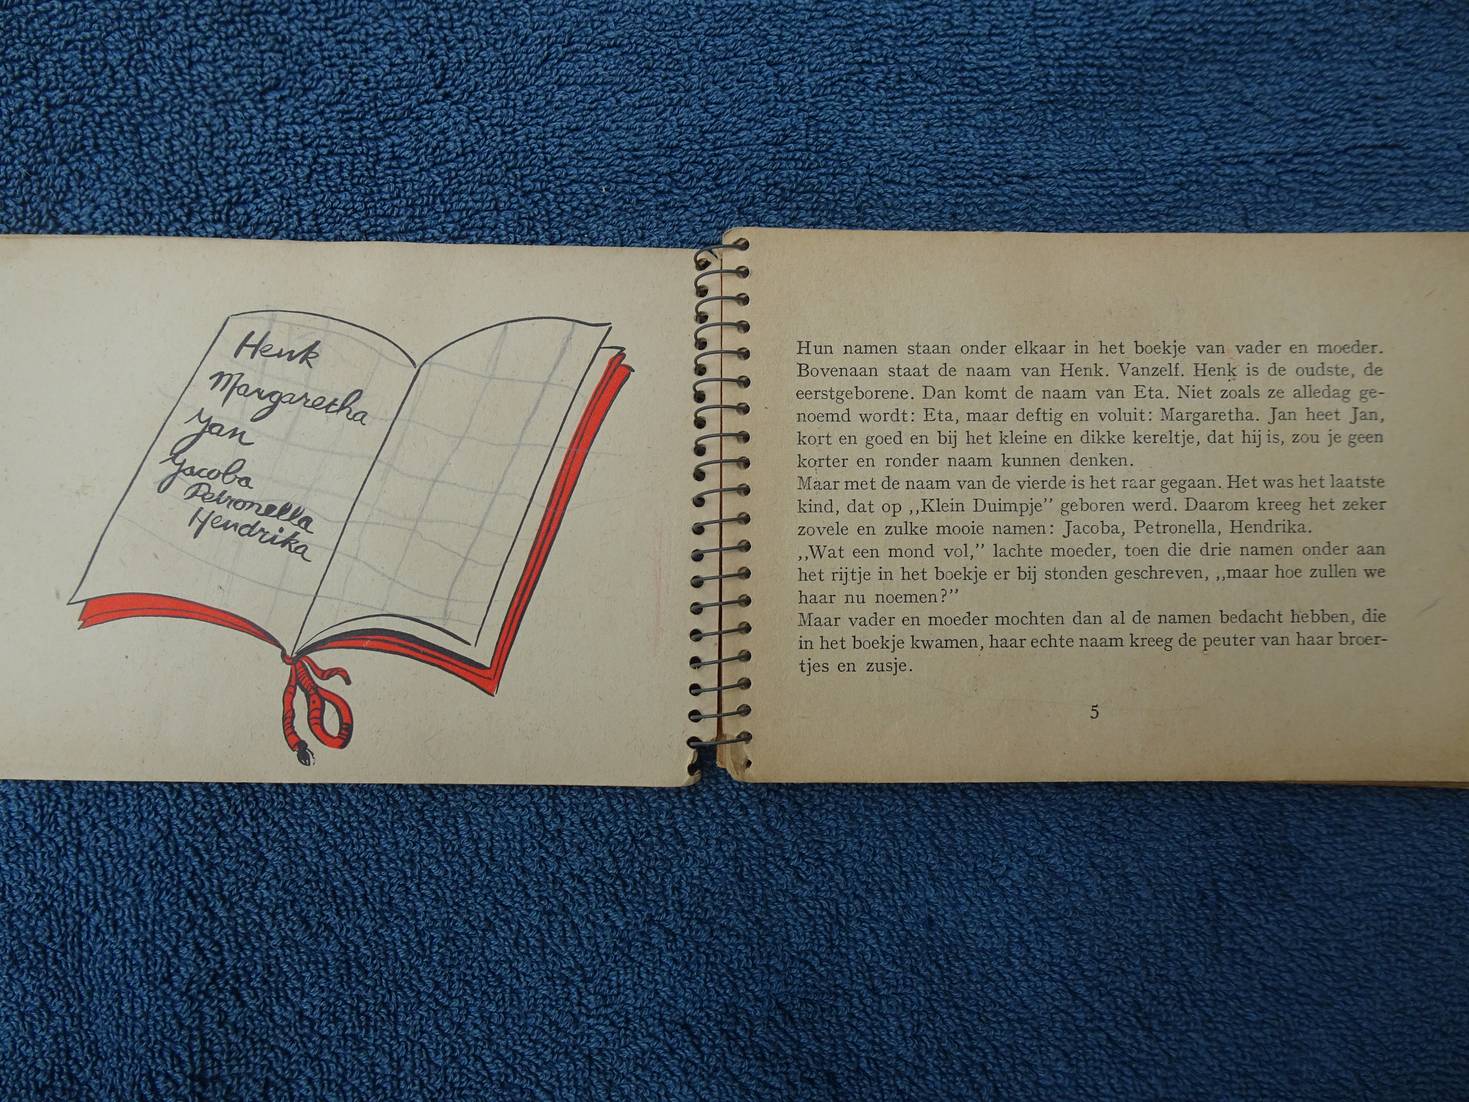 Henk
Margaretha
Jan
Jacoba
Petronella
Hendrika
Hun namen staan onder elkaar in het boekje van vader en moeder.
Bovenaan staat de naam van Henk. Vanzelf. Henk is de oudste, de
eerstgeborene. Dan komt de naam van Eta. Niet zoals ze alledag ge-
noemd wordt: Eta, maar deftig en voluit: Margaretha. Jan heet Jan,
kort en goed en bij het kleine en dikke kereltje, dat hij is, zou je geen
korter en ronder naam kunnen denken.
Maar met de naam van de vierde is het raar gegaan. Het was het laatste
kind, dat op ,,Klein Duimpje” geboren werd. Daarom kreeg het zeker
zovele en zulke mooie namen: Jacoba, Petronella, Hendrika.
,,Wat een mond vol,” lachte moeder, toen die drie namen onder aan
het rijtje in het boekje er bij stonden geschreven, ,,maar hoe zullen we
haar nu noemen?”
Maar vader en moeder mochten dan al de namen bedacht hebben, die
in het boekje kwamen, haar echte naam kreeg de peuter van haar broer-
tjes en zusje.
5